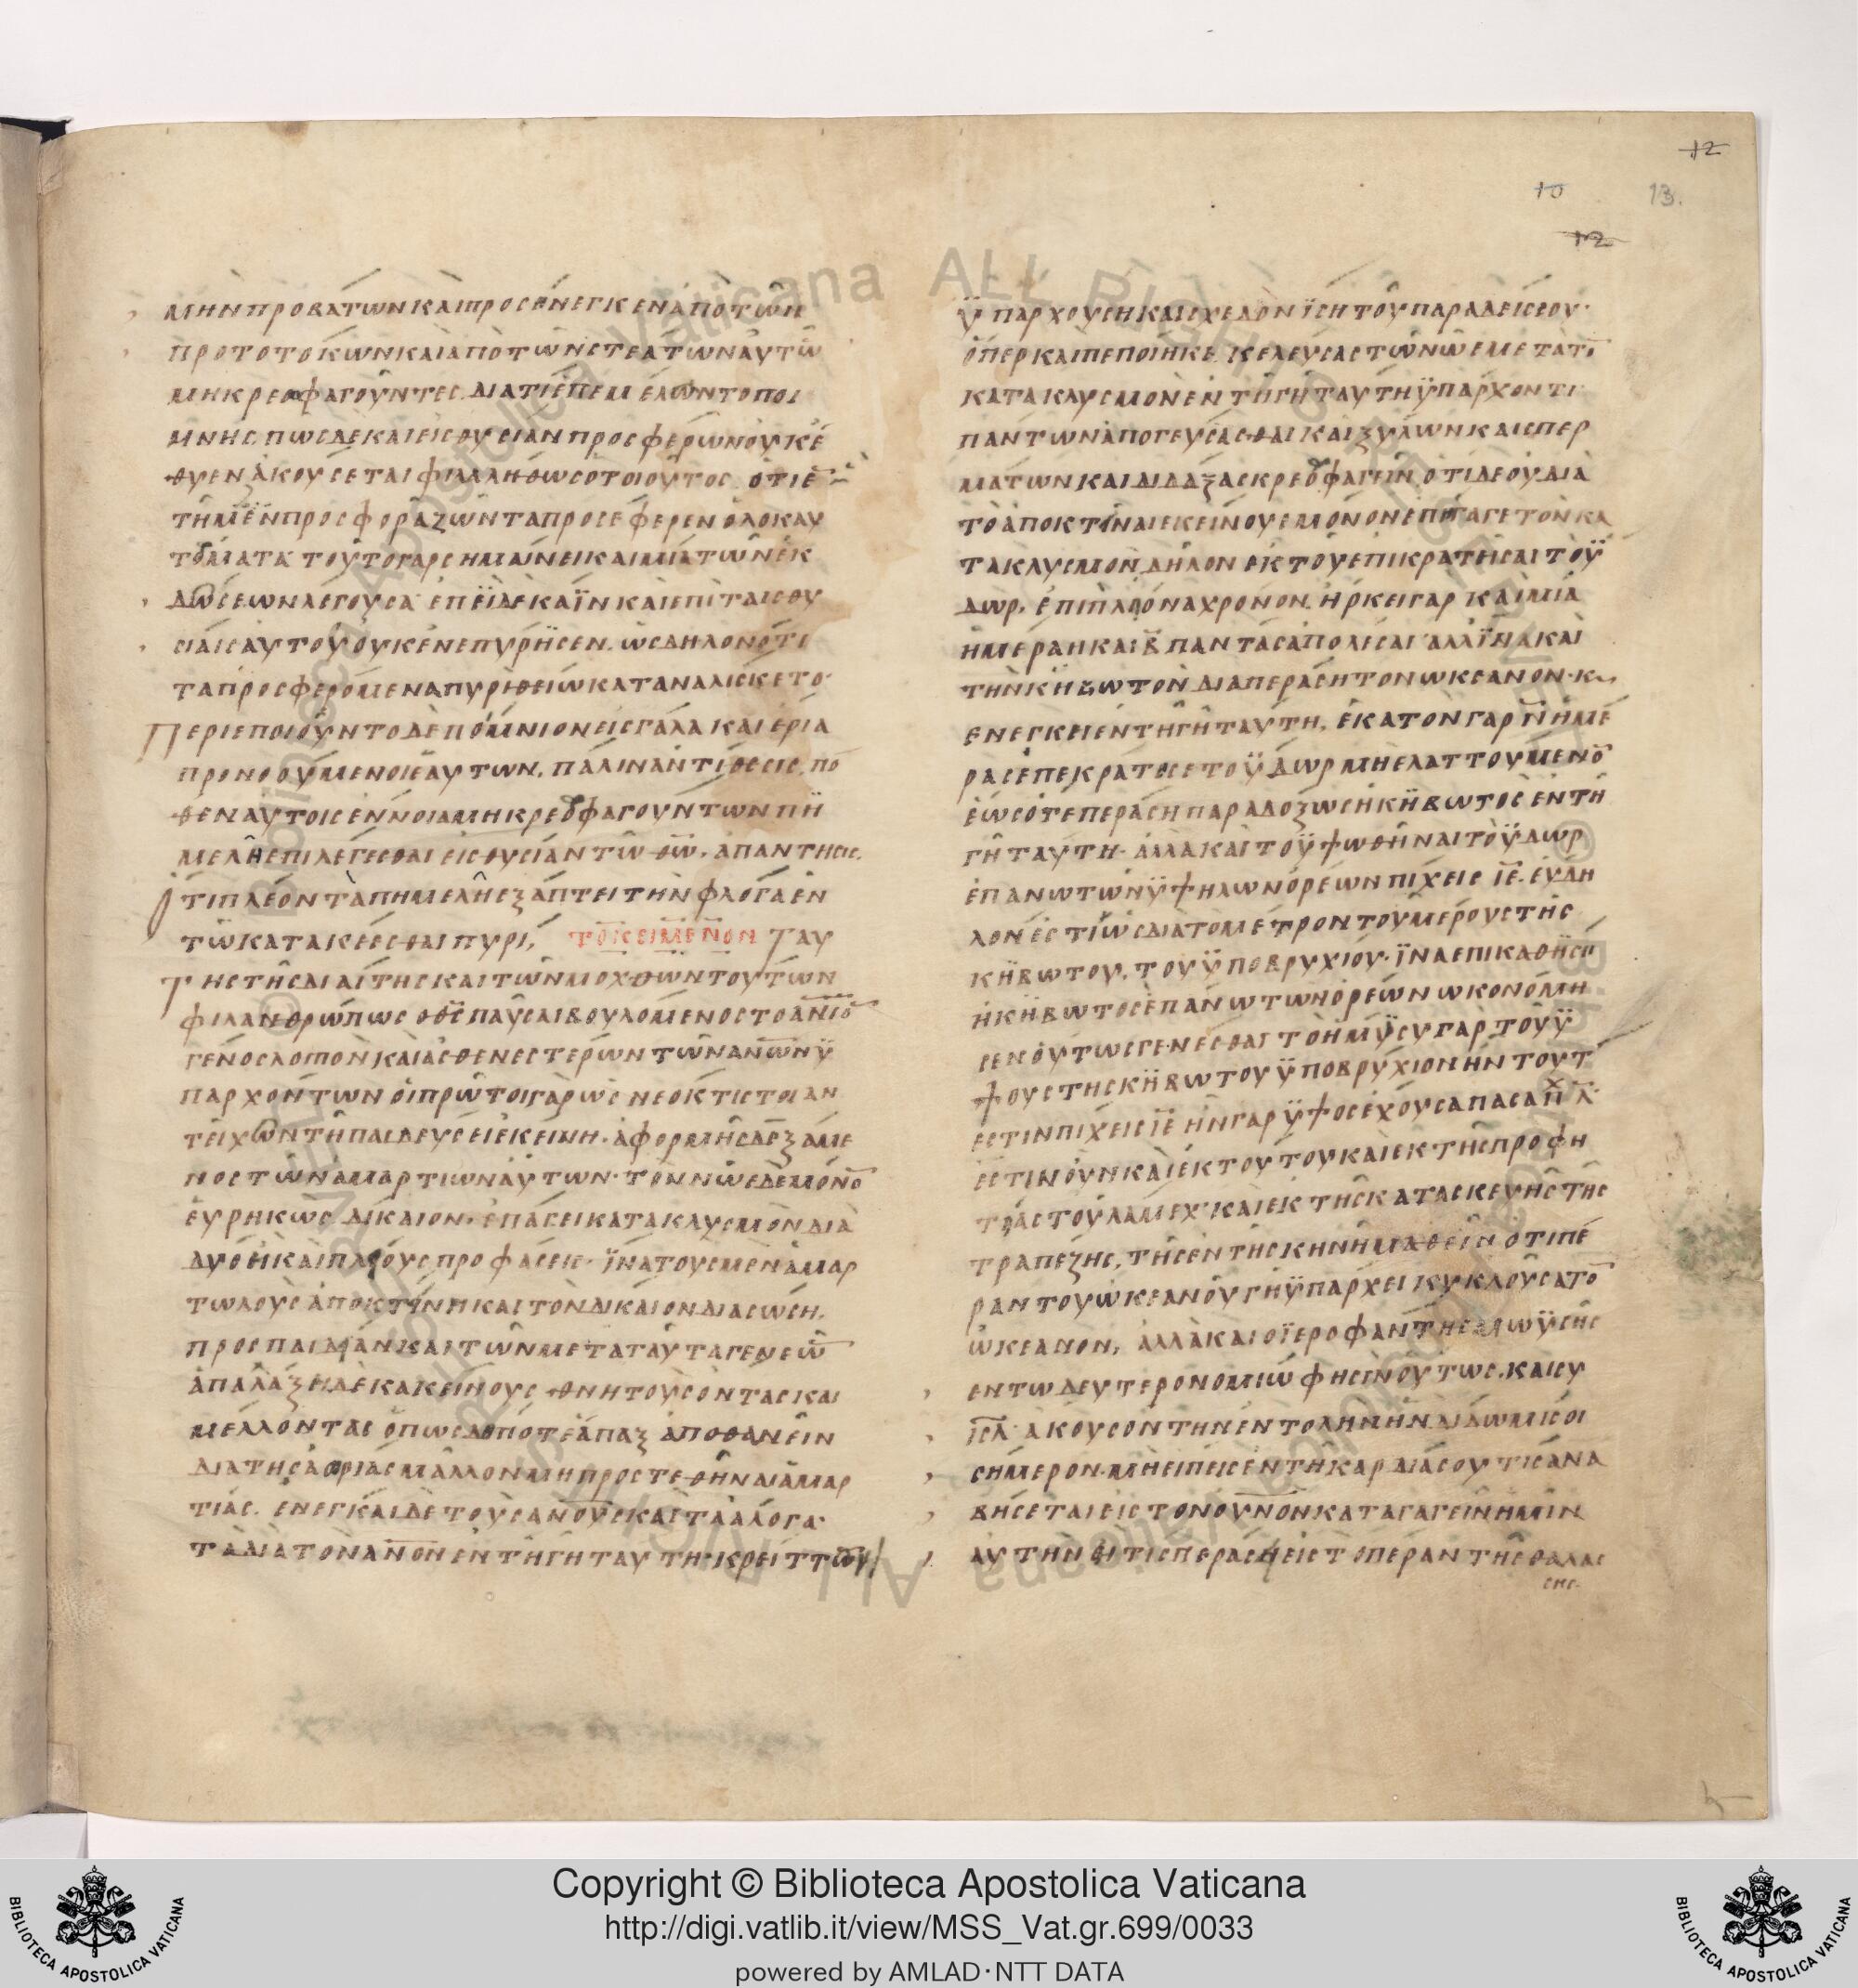 12
10
13.
12
ΜΗΝ ΠΡΟΒΑΤΩΝ ΚΑΙ ΠΡΟΣΕΝΕΓΚΕΝ ΑΠΟ ΤΩΝ
ΠΡΟΤΟΤΟΚΩΝ ΚΑΙ ΑΠΟ ΤΩΝ ΣΤΕΑΤΩΝ ΑΥΤΩ
ΜΗ ΚΡΕΟΦΑΓΟΥΝΤΕΣ. ΔΙΑ ΤΙ ΕΠΕΜΕΛΩΝΤΟ ΠΟΙ
ΜΝΗΣ. ΠΩΣ ΔΕ ΚΑΙ ΕΙΣ ΘΥΣΙΑΝ ΠΡΟΣΦΕΡΩΝ ΟΥΚ Ε
ΘΥΕΝ ΑΚΟΥΣΕΤΑΙ ΦΙΛΑΛΗΘΩΣ Ο ΤΟΙΟΥΤΟΣ. ΟΤΙ Ε
ΤΗ ΜΕΝ ΠΡΟΣΦΟΡΑ ΖΩΝΤΑ ΠΡΟΣΕΦΕΡΕΝ ΟΛΟΚΑΥ
ΤΩΜΑΤΑ ΤΟΥΤΟ ΓΑΡ ΣΗΜΑΙΝΕΙ ΚΑΙ ΜΙΑ ΤΩΝ ΕΚ
ΔΩΣΕΩΝ ΛΕΓΟΥΣΑ ΕΠΙ ΔΕ ΚΑΪΝ ΚΑΙ ΕΠΙ ΤΑΙΣ ΘΥ
ΣΙΑΙΣ ΑΥΤΟΥ ΟΥΚ ΕΝΕΠΥΡΗΣΕΝ. ΩΣ ΔΗΛΟΝΟΤΙ
ΤΑ ΠΡΟΣΦΕΡΟΜΕΝΑ ΠΥΡΙ ΘΕΙΩ ΚΑΤΑΝΑΛΙΣΚΕΤΟ·
ΠΕΡΙΕΠΟΙΟΥΝΤΟ ΔΕ ΠΟΙΜΝΙΟΝ ΕΙΣ ΓΑΛΑ ΚΑΙ ΕΡΙΑ
ΠΡΟΝΟΟΥΜΕΝΟΙ ΕΑΥΤΩΝ. ΠΑΛΙΝ ΑΝΤΙΘΕΣΙΣ. ΠΟ
ΘΕΝ ΑΥΤΟΙΣ ΕΝΝΟΙΑ ΜΗ ΚΡΕΟΦΑΓΟΥΝΤΩΝ ΠΗ
ΜΕΛΗ ΕΠΙΛΕΓΕΣΘΑΙ ΕΙΣ ΘΥΣΙΑΝ ΤΩ ΘΩ. ΑΠΑΝΤΗΣΙΣ.
ΟΤΙ ΠΛΕΟΝ ΤΑ ΠΗΜΕΛΗ ΕΞΑΠΤΕΙ ΤΗΝ ΦΛΟΓΑ ΕΝ
ΤΩ ΚΑΤΑΚΕΕΣΘΑΙ ΠΥΡΙ, ΤΟ ΚΕΙΜΕΝΟΝ ΤΑΥ
ΤΗΣ ΤΗΣ ΔΙΑΙΤΗΣ ΚΑΙ ΤΩΝ ΜΟΧΘΩΝ ΤΟΥΤΩΝ
ΦΙΛΑΝΘΡΩΠΩΣ Ο ΘΣ ΠΑΥΣΑΙ ΒΟΥΛΟΜΕΝΟΣ ΤΟ ΑΝΙΟ
ΓΕΝΟΣ ΛΟΙΠΟΝ ΚΑΙ ΑΣΘΕΝΕΣΤΕΡΩΝ ΤΩΝ ΑΝΩΝ Ϋ
ΠΑΡΧΟΝΤΩΝ ΟΙ ΠΡΩΤΟΙ ΓΑΡ ΩΣ ΝΕΟΚΤΙΣΤΟΙ ΑΝ
ΤΕΙΧΟΝ ΤΗ ΠΑΙΔΕΥΣΕΙ ΕΚΕΙΝΗ. ΑΦΟΡΜΗΣ ΔΕΞΑΜΕ
ΝΟΣ ΤΩΝ ΑΜΑΡΤΙΩΝ ΑΥΤΩΝ· ΤΟΝ ΝΩΕ ΔΕ ΜΟΝΟ
ΕΥΡΗΚΩΣ ΔΙΚΑΙΟΝ. ΕΠΑΓΕΙ ΚΑΤΑΚΛΥΣΜΟΝ ΔΙΑ
ΔΥΟ Η ΚΑΙ ΠΛΕΙΟΥΣ ΠΡΟΦΑΣΕΙΣ· ΪΝΑ ΤΟΥΣ ΜΕΝ ΑΜΑΡ
ΤΩΛΟΥΣ ΑΠΟΚΤΙΝΗ ΚΑΙ ΤΟΝ ΔΙΚΑΙΟΝ ΔΙΑΣΩΣΗ.
ΠΡΟΣ ΠΑΙΔΙΑΝ ΚΑΙ ΤΩΝ ΜΕΤΑ ΤΑΥΤΑ ΓΕΝΕΩ
ΑΠΑΛΑΞΗ ΔΕ ΚΑΚΕΙΝΟΥΣ ΘΝΗΤΟΥΣ ΟΝΤΑΣ ΚΑΙ
ΜΕΛΛΟΝΤΑΣ ΟΠΩΣΔΗΠΟΤΕ ΑΠΑΞ ΑΠΟΘΑΝΕΙΝ
ΔΙΑ ΤΗΣ ΑΩΡΙΑΣ ΜΑΛΛΟΝ ΜΗ ΠΡΟΣΤΕΘΗΝΑΙ ΑΜΑΡ
ΤΙΑΣ. ΕΝΕΓΚΑΙ ΔΕ ΤΟΥΣ ΑΝΟΥΣ ΚΑΙ ΤΑ ΑΛΟΓΑ·
ΤΑ ΔΙΑ ΤΟΝ ΑΝΟΝ ΕΝ ΤΗ ΓΗ ΤΑΥΤΗ· ΚΡΕΙΤΤΟΝΙ
ΫΠΑΡΧΟΥΣΗ ΚΑΙ ΣΧΕΔΟΝ ΪΣΗ ΤΟΥ ΠΑΡΑΔΕΙΣΟΥ·
ΟΠΕΡ ΚΑΙ ΠΕΠΟΙΗΚΕ. ΚΕΛΕΥΣΑΣ ΤΩ ΝΩΕ ΜΕΤΑ Τ
ΚΑΤΑΚΛΥΣΜΟΝ ΕΝ ΤΗ ΓΗ ΤΑΥΤΗ ΫΠΑΡΧΟΝΤΙ
ΠΑΝΤΩΝ ΑΠΟΓΕΥΣΑΣΘΑΙ ΚΑΙ ΞΥΛΩΝ ΚΑΙ ΣΠΕΡ
ΜΑΤΩΝ ΚΑΙ ΔΙΔΑΞΑΣ ΚΡΕΟΦΑΓΕΙΝ. ΟΤΙ ΔΕ ΟΥ ΔΙΑ
ΤΟ ΑΠΟΚΤΙΝΑΙ ΕΚΕΙΝΟΥΣ ΜΟΝΟΝ ΕΠΗΓΑΓΕ ΤΟΝ ΚΑ
ΤΑΚΛΥΣΜΟΝ ΔΗΛΟΝ ΕΚ ΤΟΥ ΕΠΙΚΡΑΤΗΣΑΙ ΤΟ Ϋ
ΔΩΡ. ΕΠΙ ΠΛΙΟΝΑ ΧΡΟΝΟΝ. ΗΡΚΕΙ ΓΑΡ ΚΑΙ ΜΙΑ
ΗΜΕΡΑ Η ΚΑΙ Β ΠΑΝΤΑΣ ΑΠΟΛΕΣΑΙ ΑΛΛ ΪΝΑ ΚΑΙ
ΤΗΝ ΚΗΒΩΤΟΝ ΔΙΑΠΕΡΑΣΗ ΤΟΝ ΩΚΕΑΝΟΝ· Κ
ΕΝΕΓΚΕΙ ΕΝ ΤΗ ΓΗ ΤΑΥΤΗ. ΕΚΑΤΟΝ ΓΑΡ Ν ΗΜΕ
ΡΑΣ ΕΠΕΚΡΑΤΗΣΕ ΤΟ ΫΔΩΡ ΜΗ ΕΛΑΤΤΟΥΜΕΝΟ
ΕΩΣ ΟΤΕ ΠΕΡΑΣΗ ΠΑΡΑΔΟΞΩΣ Η ΚΗΒΩΤΟΣ ΕΝ ΤΗ
ΓΗ ΤΑΥΤΗ· ΑΛΛΑ ΚΑΙ ΤΟ ΫΨΩΘΗΝΑΙ ΤΟ ΫΔΩΡ
ΕΠΑΝΩ ΤΩΝ ΫΨΗΛΩΝ ΟΡΕΩΝ ΠΙΧΕΙΣ ΙΕ. ΕΥΔΗ
ΛΟΝ ΕΣΤΙΝ ΩΣ ΔΙΑ ΤΟ ΜΕΤΡΟΝ ΤΟΥ ΜΕΡΟΥΣ ΤΗΣ
ΚΗΒΩΤΟΥ. ΤΟΥ ΫΠΟΒΡΥΧΙΟΥ· ΪΝΑ ΕΠΙΚΑΘΗΣΗ
Η ΚΗΒΩΤΟΣ ΕΠΑΝΩ ΤΩΝ ΟΡΕΩΝ ΩΚΟΝΟΜΗ
ΣΕΝ ΟΥΤΩΣ ΓΕΝΕΣΘΑΙ ΤΟ ΗΜΥΣΥ ΓΑΡ ΤΟΥ Ϋ
ΨΟΥΣ ΤΗΣ ΚΗΒΩΤΟΥ ΫΠΟΒΡΥΧΙΟΝ ΗΝ ΤΟΥΤ
ΕΣΤΙΝ ΠΙΧΕΙΣ ΙΕ ΗΝ ΓΑΡ ΫΨΟΣ ΕΧΟΥΣΑ ΠΑΣΑ Π Λ·
ΕΣΤΙΝ ΟΥΝ ΚΑΙ ΕΚ ΤΟΥΤΟΥ ΚΑΙ ΕΚ ΤΗΣ ΠΡΟΦΗ
ΤΙΑΣ ΤΟΥ ΛΑΜΕΧ· ΚΑΙ ΕΚ ΤΗΣ ΚΑΤΑΣΚΕΥΗΣ ΤΗΣ
ΤΡΑΠΕΖΗΣ, ΤΗΣ ΕΝ ΤΗ ΣΚΗΝΗ ΜΑΘΕΙΝ ΟΤΙ ΠΕ
ΡΑΝ ΤΟΥ ΩΚΕΑΝΟΥ ΓΗ ΫΠΑΡΧΕΙ ΚΥΚΛΟΥΣΑ ΤΟ
ΩΚΕΑΝΟΝ, ΑΛΛΑ ΚΑΙ Ο ΪΕΡΟΦΑΝΤΗΣ ΜΩΫΣΗΣ
ΕΝ ΤΩ ΔΕΥΤΕΡΟΝΟΜΙΩ ΦΗΣΙΝ ΟΥΤΩΣ. ΚΑΙ ΣΥ
ΙΣΛ· ΑΚΟΥΣΟΝ ΤΗΝ ΕΝΤΟΛΗΝ ΗΝ ΔΙΔΩΜΙ ΣΟΙ
ΣΗΜΕΡΟΝ. ΜΗ ΕΙΠΕΙΣ ΕΝ ΤΗ ΚΑΡΔΙΑ ΣΟΥ ΤΙΣ ΑΝΑ
ΒΗΣΕΤΑΙ ΕΙΣ ΤΟΝ ΟΥΝΟΝ ΚΑΤΑΓΑΓΕΙΝ ΗΜΙΝ
ΑΥΤΗΝ Η ΤΙΣ ΠΕΡΑΣΗ ΕΙΣ ΤΟ ΠΕΡΑΝ ΤΗΣ ΘΑΛΑΣ
ΣΗΣ.
Copyright © Biblioteca Apostolica Vaticana
http://digi.vatlib.it/view/MSS_Vat.gr.699/0033
powered by AMLAD·NTT DATA
BIBLIOTECA APOSTOLICA VATICANA
BIBLIOTECA APOSTOLICA VATICANA